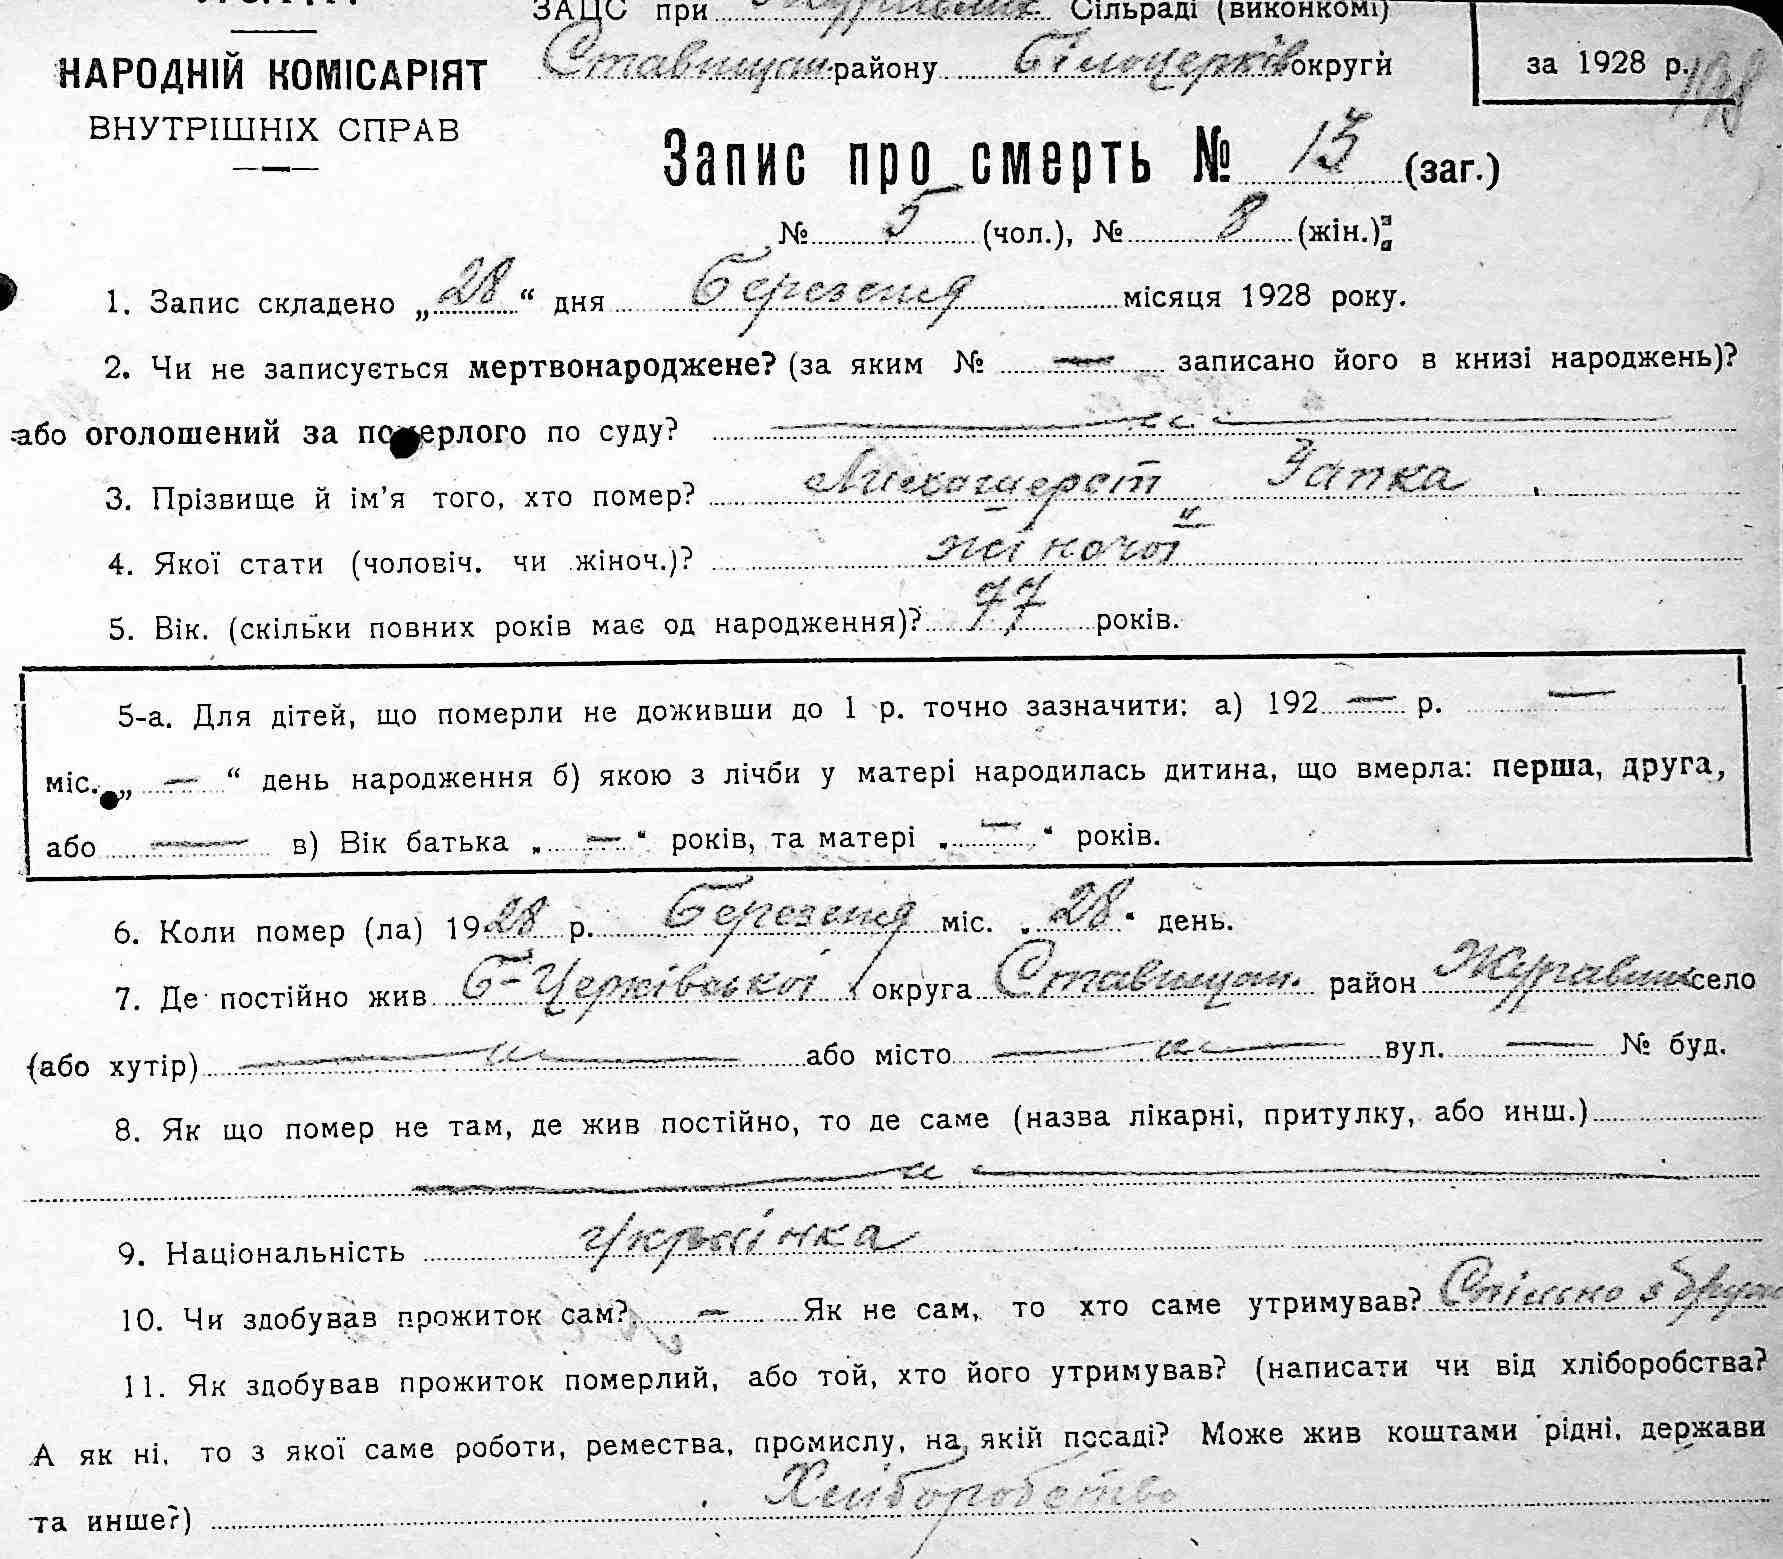 ЗАЦС при Сільраді (виконкомі)
НАРОДНІЙ КОМІСАРІЯТ
ВНУТРІШНІХ СПРАВ
Ставищан. району Білоцерків округи
за 1928 р.
Запис про смерть № 13 (заг.)
№ 5 (чол.), № 8 (жін.)
1. Запис складено „28“ дня Березеня місяця 1928 року.
2. Чи не записується мертвонароджене? (за яким № — записано його в книзі народжень)?
або оголошений за померлого по суду? — „ —
3. Прізвище й ім’я того, хто помер? Лихошерст
4. Якої стати (чоловіч. чи жіноч.)? жіночої
5. Вік. (скільки повних років має од народження)? 77 років.
5-а. Для дітей, що померли не доживши до 1 р. точно зазначити: а) 192 — р. —
міс. „ — “ день народження б) якою з лічби у матері народилась дитина, що вмерла: перша, друга,
або — в) Вік батька „ — “ років, та матері „ — “ років.
6. Коли помер (ла) 1928 р. Березеня міс. „28“ день.
7. Де постійно жив Б-Церківської округа Ставищан. район Журавлиха село
(або хутір) — „ — або місто — „ — вул. — № буд.
8. Як що помер не там, де жив постійно, то де саме (назва лікарні, притулку, або инш.)
— „ —
9. Національність Українка
10. Чи здобував прожиток сам? — Як не сам, то хто саме утримував? Спільно з
11. Як здобував прожиток померлий, або той, хто його утримував? (написати чи від хліборобства?
А як ні, то з якої саме роботи, ремества, промислу, на якій посаді? Може жив коштами рідні, держави
та инше?) Хліборобство